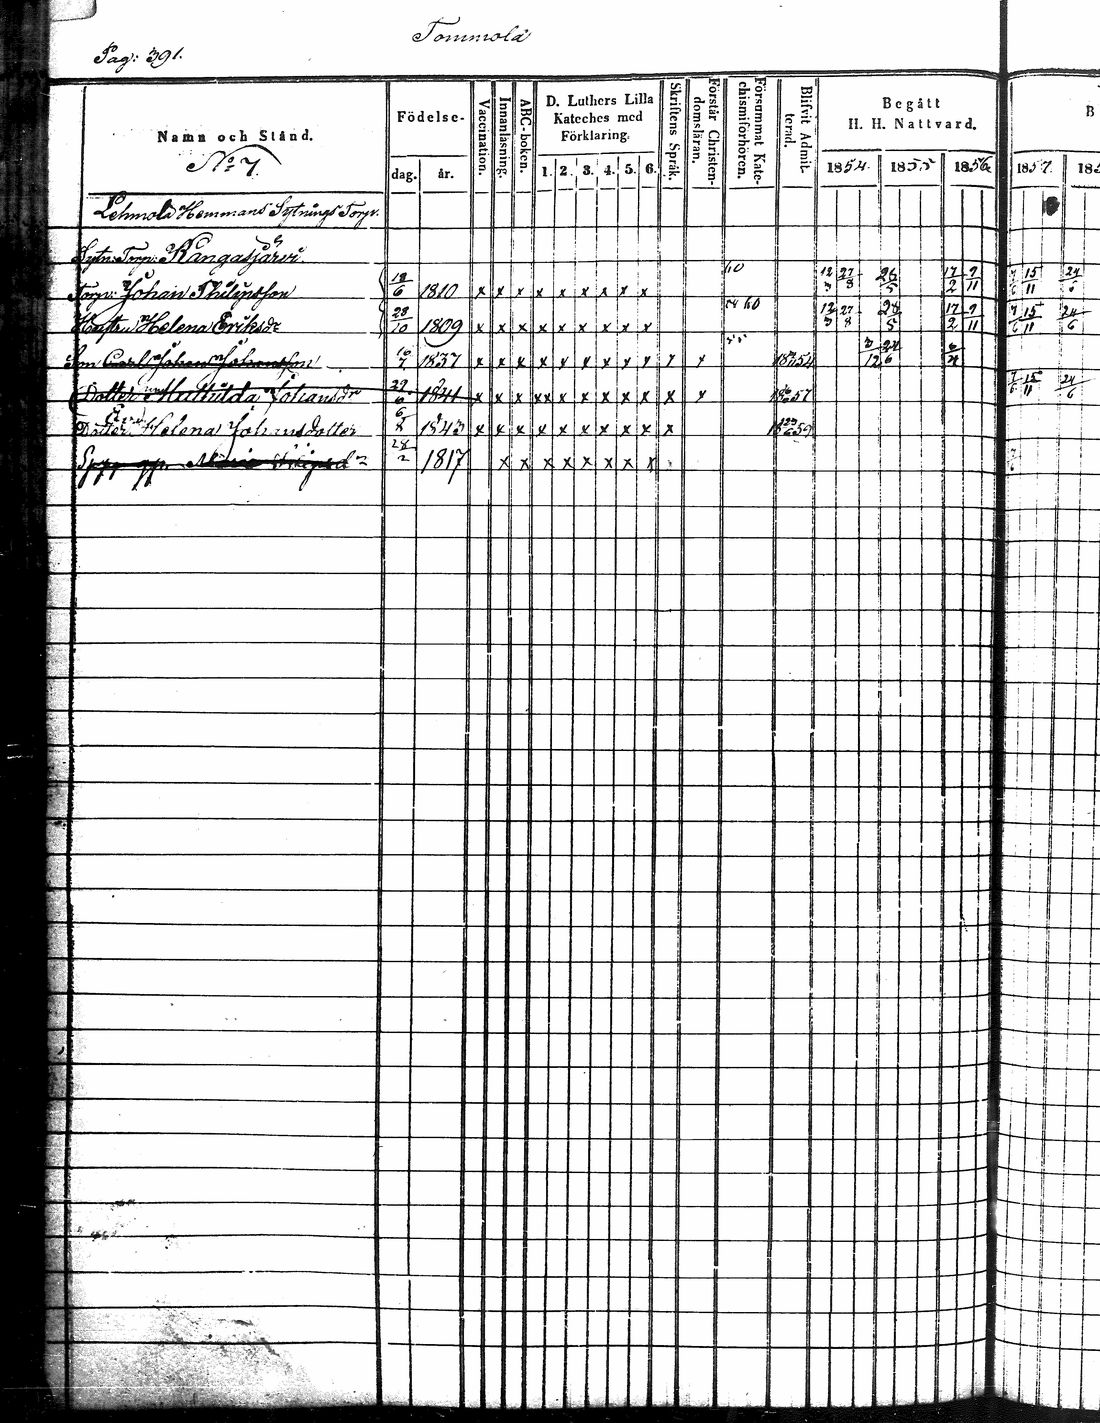 Tommola
Pag: 391.
Namn och Stånd.
Födelse-
dag. år.
Vaccination.
Innanläsning.
ABC-boken.
D. Luthers Lilla
Kateches med
Förklaring.
1. 2. 3. 4. 5. 6.
Skriftens Språk.
Förstår Christen-
domsläran.
Försummat Kate-
chismiförhören.
Blifvit Admit-
terad.
Begått
H. H. Nattvard.
1854. 1855 1856. 1857.
B
No 7.
Lehmola Hemmans Sytnings Torp.
Sytn: Torp: Kangasjärvi
Torp: Johan Philipsson 18/6 1810 x x x x x x x x x 60 26/5 17/2 9/11 15/11 24/6
Hustru Helena Eriksdr 28/10 1809 x x x x x x x x x 60 24/5 17/2 9/11 15/11 24/6
Son Carl Johan Johansson 1837 x x x x x x x x x 55 1854
Dotter Mathilda Johansdr 29/6 1841 x x x x x x x x x x 1857 15/11 24/6
Dotter Helena Johansdotter 1843 x x x x x x x x x x 1859
28/2 1817 x x x x x x x x